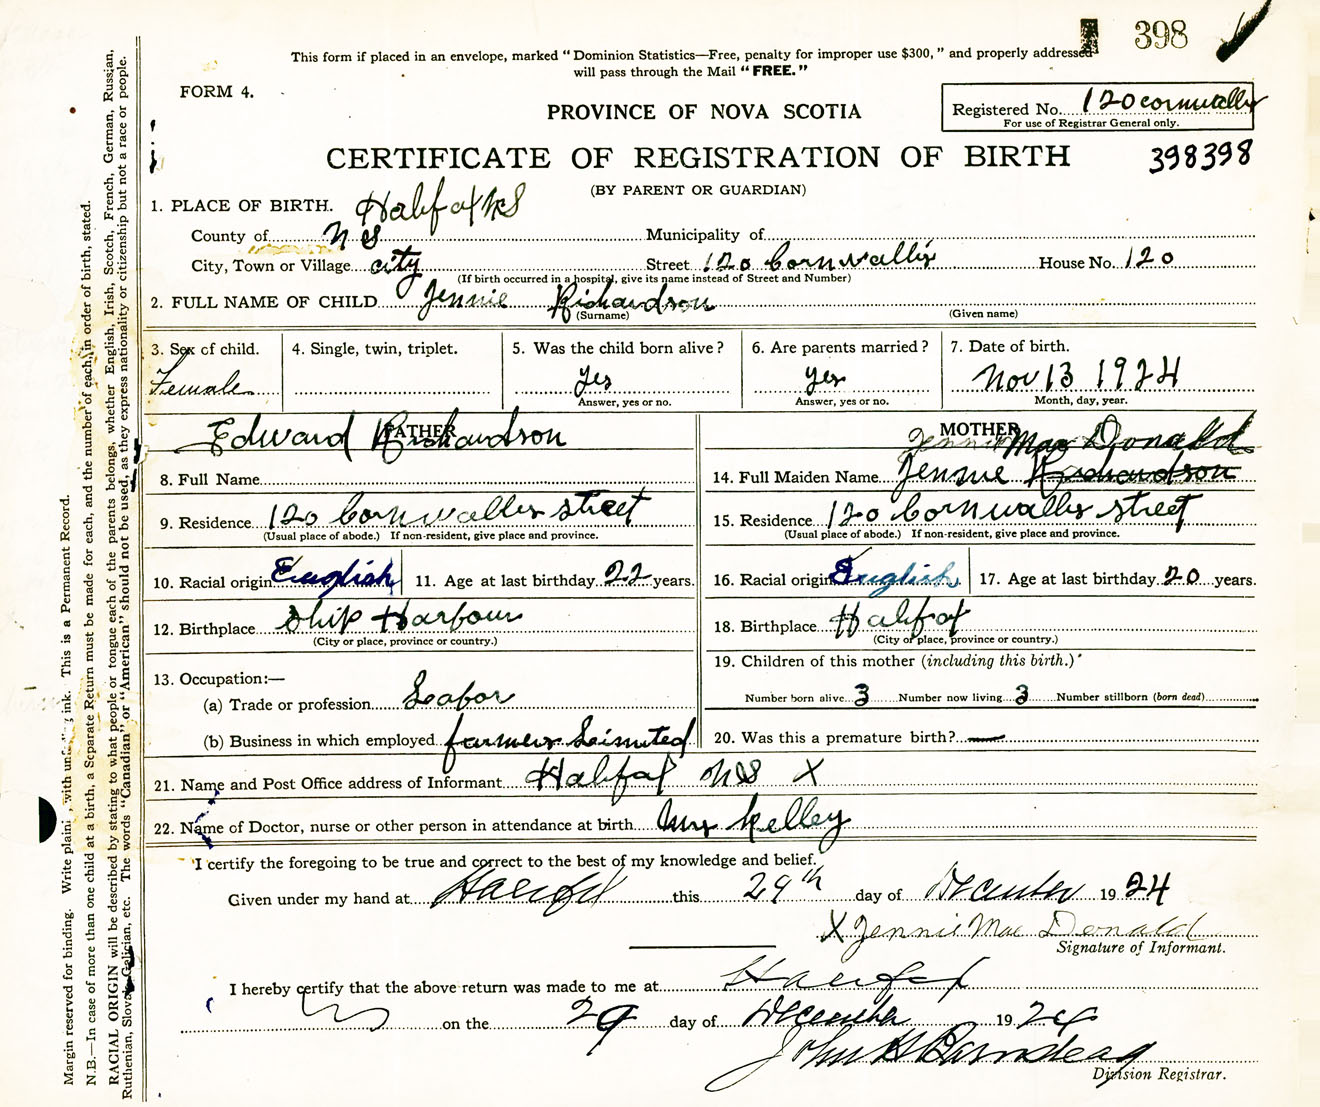 398
This form if placed in an envelope, marked "Dominion Statistics—Free, penalty for improper use $300," and properly addressed
will pass through the Mail "FREE."
FORM 4.
PROVINCE OF NOVA SCOTIA
Registered No. 120 cornwallis
For use of Registrar General only.
CERTIFICATE OF REGISTRATION OF BIRTH
398398
(BY PARENT OR GUARDIAN)
1. PLACE OF BIRTH. Halifax NS
County of NS Municipality of
City, Town or Village city Street 120 Cornwallis House No. 120
(If birth occurred in a hospital, give its name instead of Street and Number)
2. FULL NAME OF CHILD Jennie Richardson
(Surname) (Given name)
3. Sex of child. 4. Single, twin, triplet. 5. Was the child born alive? 6. Are parents married? 7. Date of birth.
Female yes yes Nov 13 1924
Answer, yes or no. Answer, yes or no. Month, day, year.
FATHER MOTHER
Edward Richardson Jennie Mac Donald
8. Full Name 14. Full Maiden Name Jennie Richardson
9. Residence 120 Cornwallis street 15. Residence 120 Cornwallis street
(Usual place of abode.) If non-resident, give place and province. (Usual place of abode.) If non-resident, give place and province.
10. Racial origin English 11. Age at last birthday 22 years. 16. Racial origin English 17. Age at last birthday 20 years.
12. Birthplace Ship Harbour 18. Birthplace Halifax
(City or place, province or country.) (City or place, province or country.)
13. Occupation:— 19. Children of this mother (including this birth.)
(a) Trade or profession Leabor Number born alive 3 Number now living 3 Number stillborn (born dead)
(b) Business in which employed farmers Leimuted 20. Was this a premature birth? —
21. Name and Post Office address of Informant Halifax NS X
22. Name of Doctor, nurse or other person in attendance at birth Kelley
I certify the foregoing to be true and correct to the best of my knowledge and belief.
Given under my hand at Halifax this 29th day of December 1924
X Jennie Mac Donald
Signature of Informant.
I hereby certify that the above return was made to me at Halifax
on the 29 day of December 1924
John
Division Registrar.
Margin reserved for binding. Write plainl , with unf ink. This is a Permanent Record.
N.B.—In case of more than one child at a birth, a Separate Return must be made for each, and the number of each, in order of birth, stated.
RACIAL ORIGIN will be described by stating to what people or tongue each of the parents belongs, whether English, Irish, Scotch, French, German, Russian,
Ruthenian, Slovak, Galician, etc. The words "Canadian" or "American" should not be used, as they express nationality or citizenship but not a race or people.